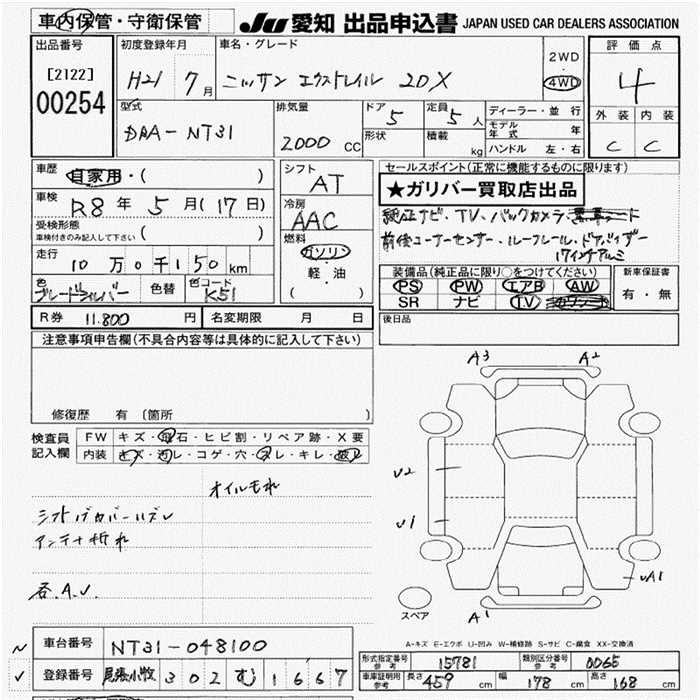 車内保管・守衛保管 JU 愛知 出品申込書 JAPAN USED CAR DEALERS ASSOCIATION
出品番号 初度登録年月 車名・グレード 2WD・4WD 評価点
[2122] H21 7月 ニッサン エクストレイル 20X 4
00254
型式 排気量 ドア 定員 ディーラー・並行 外装 内装
DAA-NT31 2000 CC 5 5人 モデル年式 年 C C
形状 積載 kg ハンドル 左・右
車歴 自家用・( ) シフト AT セールスポイント(正常に機能するものに限ります)
車検 R8年5月(17日) 冷房 AAC ★ガリバー買取店出品
受検形態 車検付きのみ記入して下さい ( ) 燃料 純正ナビ、TV、バックカメラ
ガソリン・軽・油 ( ) 前後コーナーセンサー・ルーフレール・ドアバイザー
17インチアルミ
走行 10万0千150km 装備品(純正品に限り〇をつけてください) 新車保証書
色 色替 色コード K51 PS PW エアB AW 有・無
SR ナビ TV
R券 11.800円 名変期限 月 日 後日品
注意事項申告欄(不具合内容等は具体的に記入して下さい)
修復歴 有 (箇所 )
A3 A2
検査員記入欄 FW キズ・飛石・ヒビ割・リペア跡・X要
内装 キズ・汚レ・コゲ・穴・スレ・キレ・破レ
オイルもれ U2
シフトノブカバーハズレ U1
アンテナ折れ
UA1
A1
スペア
A-キズ E-エクボ U-凹み W-補修跡 S-サビ C-腐食 XX-交換済
車台番号 NT31-048100
登録番号 尾張小牧 302 む 1667
形式指定番号 参考 15781 類別区分番号 参考 0065
車庫証明用 参考 長さ 459 cm 幅 178 cm 高さ 168 cm